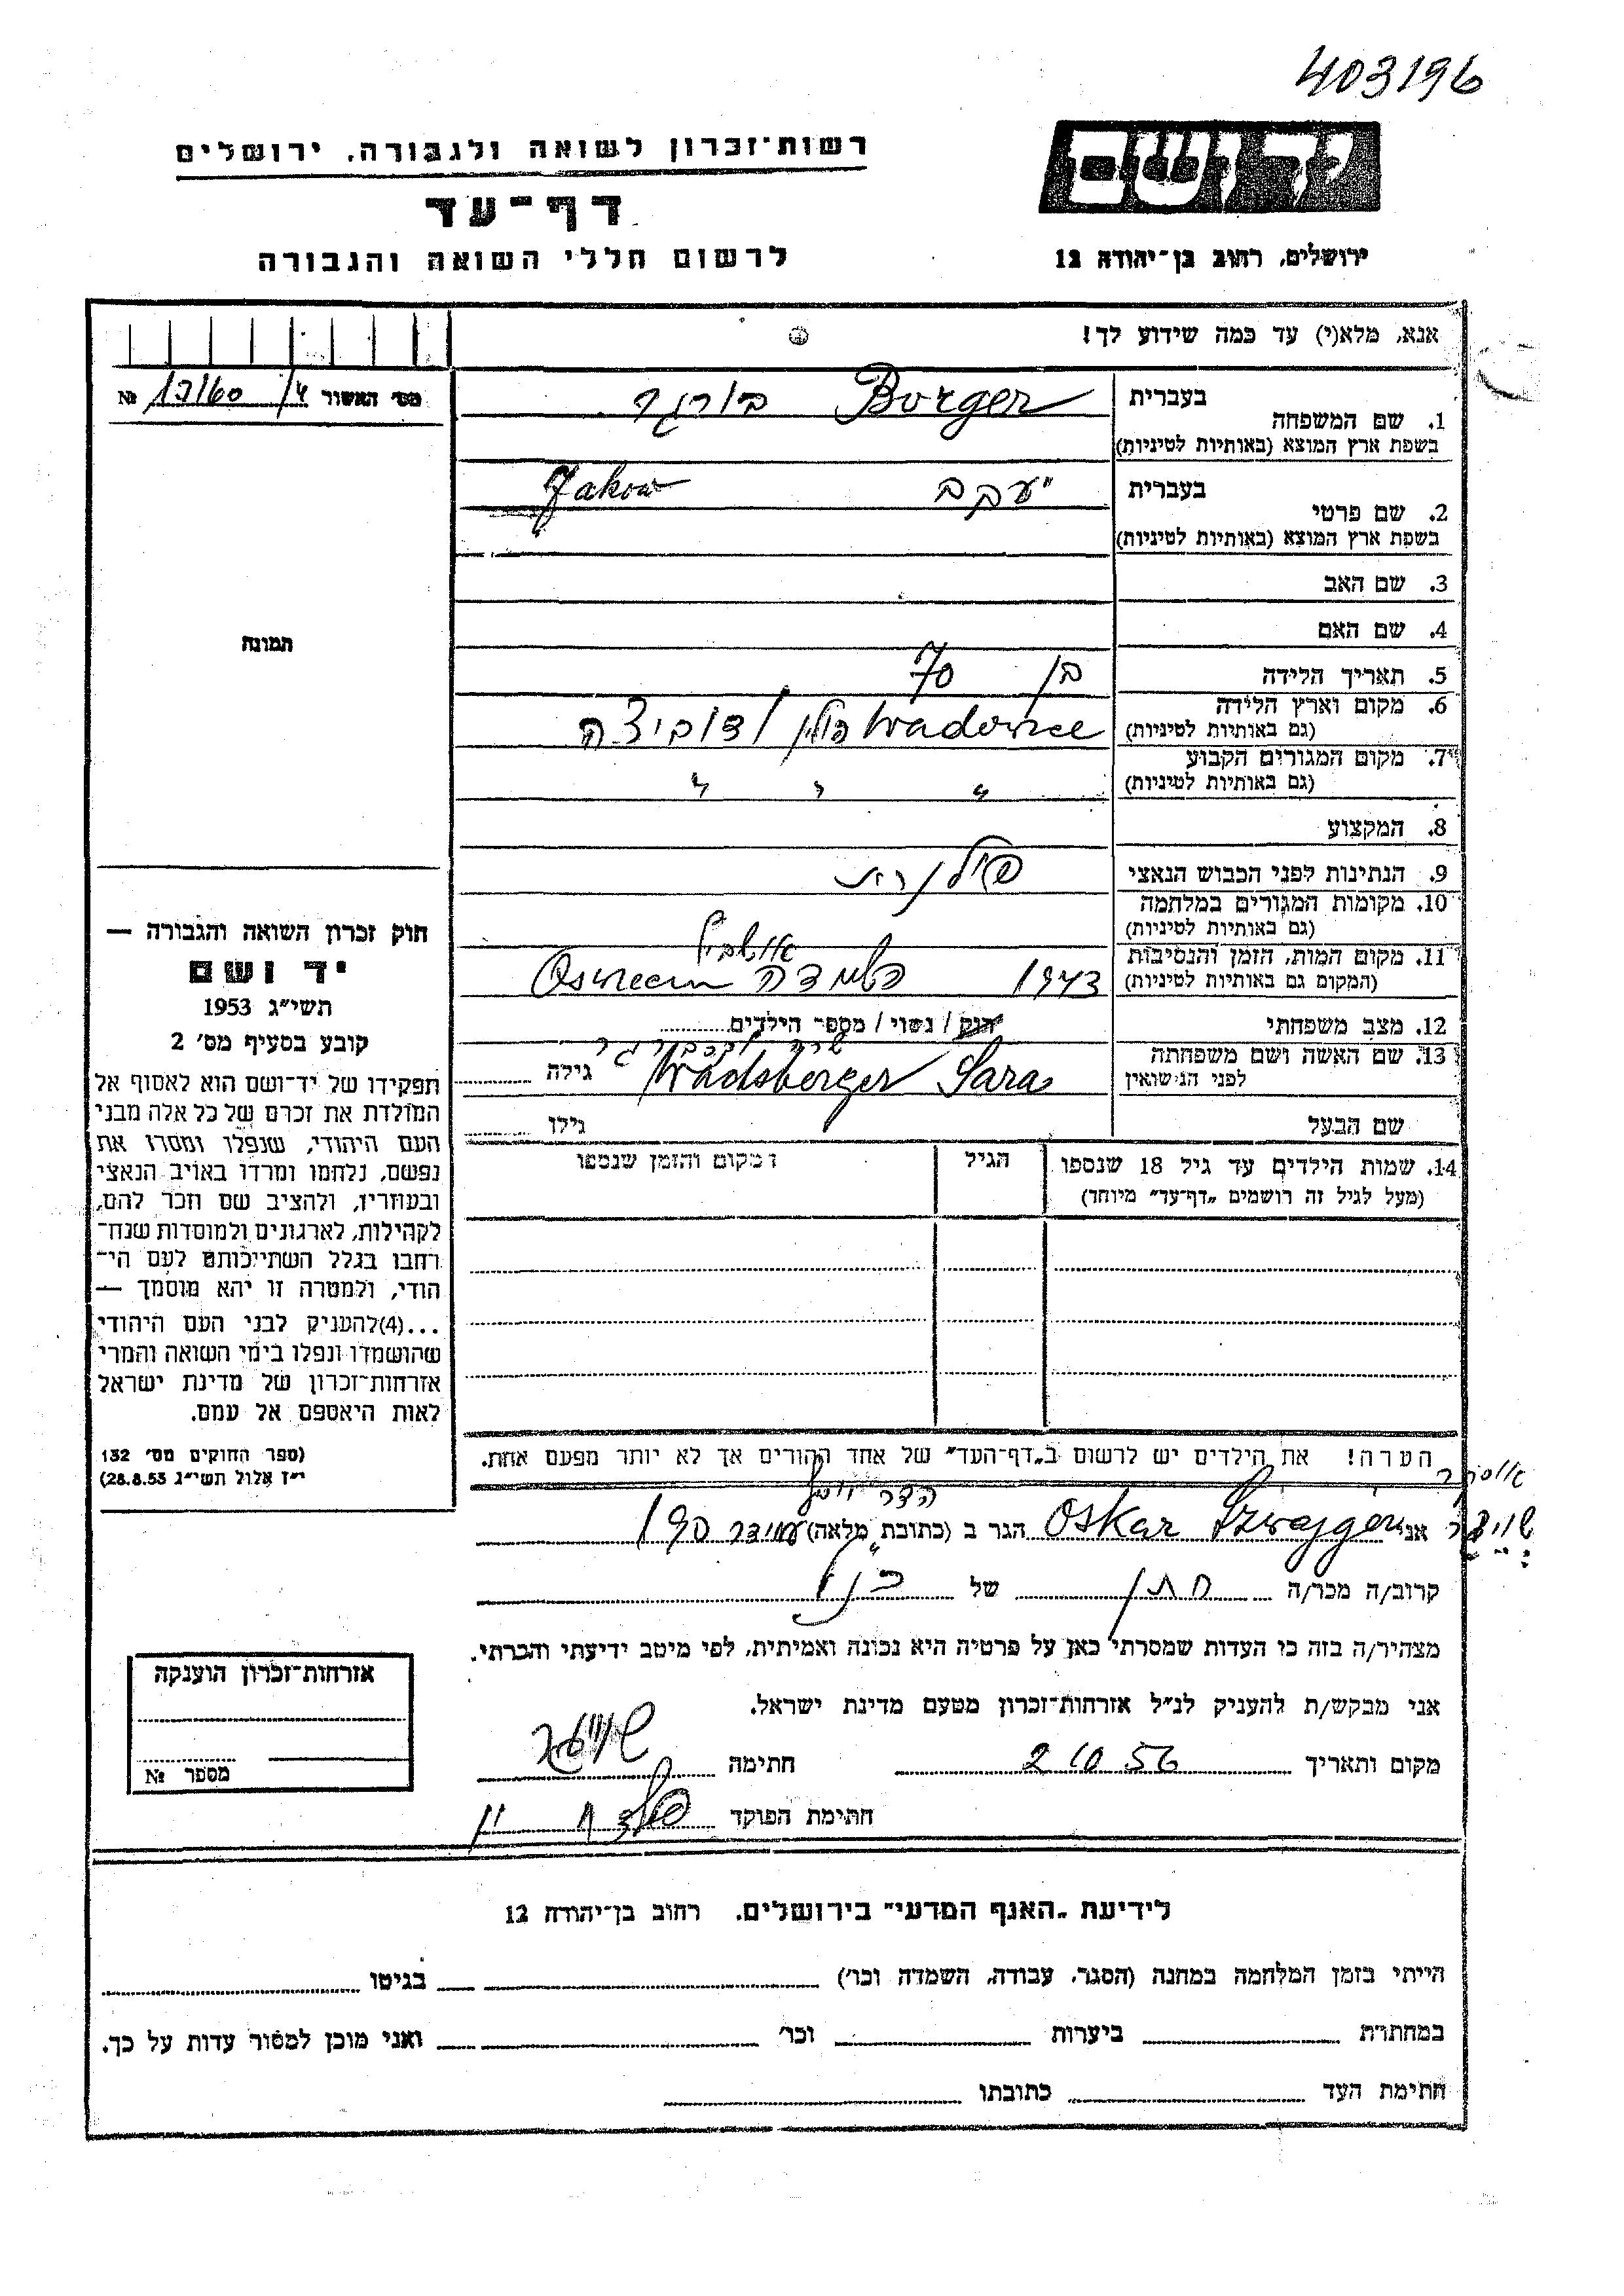 403196
יד ושם
רשות־זכרון לשואה ולגבורה, ירושלים
דף־עד
לרשום חללי השואה והגבורה
ירושלים, רחוב בן־יהודה 12
אנא, מלא(י) עד כמה שידוע לך!
מס׳ האשור № 17/60
1. שם המשפחה
בעברית
בורגר Borger
בשפת ארץ המוצא (באותיות לטיניות)
2. שם פרטי
בעברית
יעקב Jakow
בשפת ארץ המוצא (באותיות לטיניות)
3. שם האב
4. שם האם
תמונה
5. תאריך הלידה
בן 70
6. מקום וארץ הלידה
(גם באותיות לטיניות)
Wadowice פולין
7. מקום המגורים הקבוע
(גם באותיות לטיניות)
" " "
8. המקצוע
9. הנתינות לפני הכבוש הנאצי
פולנית
10. מקומות המגורים במלחמה
(גם באותיות לטיניות)
11. מקום המות, הזמן והנסיבות
(המקום גם באותיות לטיניות)
1943 השמדה
12. מצב משפחתי
רווק / נשוי / מספר הילדים
13. שם האשה ושם משפחתה
לפני הנישואין
שרה
Wadsberger Sara
גילה
שם הבעל
גילו
14. שמות הילדים עד גיל 18 שנספו
(מעל לגיל זה רושמים „דף־עד״ מיוחד)
הגיל
המקום והזמן שנספו
חוק זכרון השואה והגבורה —
יד ושם
תשי״ג 1953
קובע בסעיף מס׳ 2
תפקידו של יד־ושם הוא לאסוף אל
המולדת את זכרם של כל אלה מבני
העם היהודי, שנפלו ומסרו את
נפשם, נלחמו ומרדו באויב הנאצי
ובעוזריו, ולהציב שם וזכר להם,
לקהילות, לארגונים ולמוסדות שנח־
רחבו בגלל השתייכותם לעם הי־
הודי, ולמטרה זו יהא מוסמך —
...(4)להעניק לבני העם היהודי
שהושמדו ונפלו בימי השואה והמרי
אזרחות־זכרון של מדינת ישראל
לאות היאספם אל עמם.
(ספר החוקים מס׳ 132
י״ז אלול תשי״ג 28.8.53)
הערה! את הילדים יש לרשום ב„דף־העד״ של אחד ההורים אך לא יותר מפעם אחת.
אוסקר
אני Oskar הגר ב (כתובת מלאה) עמידר 190
קרוב/ה מכר/ה חתן של
מצהיר/ה בזה כי העדות שמסרתי כאן על פרטיה היא נכונה ואמיתית, לפי מיטב ידיעתי והכרתי.
אני מבקש/ת להעניק לנ״ל אזרחות־זכרון מטעם מדינת ישראל.
מקום ותאריך 2 10 56 חתימה
חתימת הפוקד
אזרחות־זכרון הוענקה
מספר №
לידיעת „האגף המדעי״ בירושלים, רחוב בן־יהודה 12
הייתי בזמן המלחמה במחנה (הסגר, עבודה, השמדה וכו׳) בגיטו
במחתרת ביערות וכו׳ ואני מוכן למסור עדות על כך.
חתימת העד כתובתו